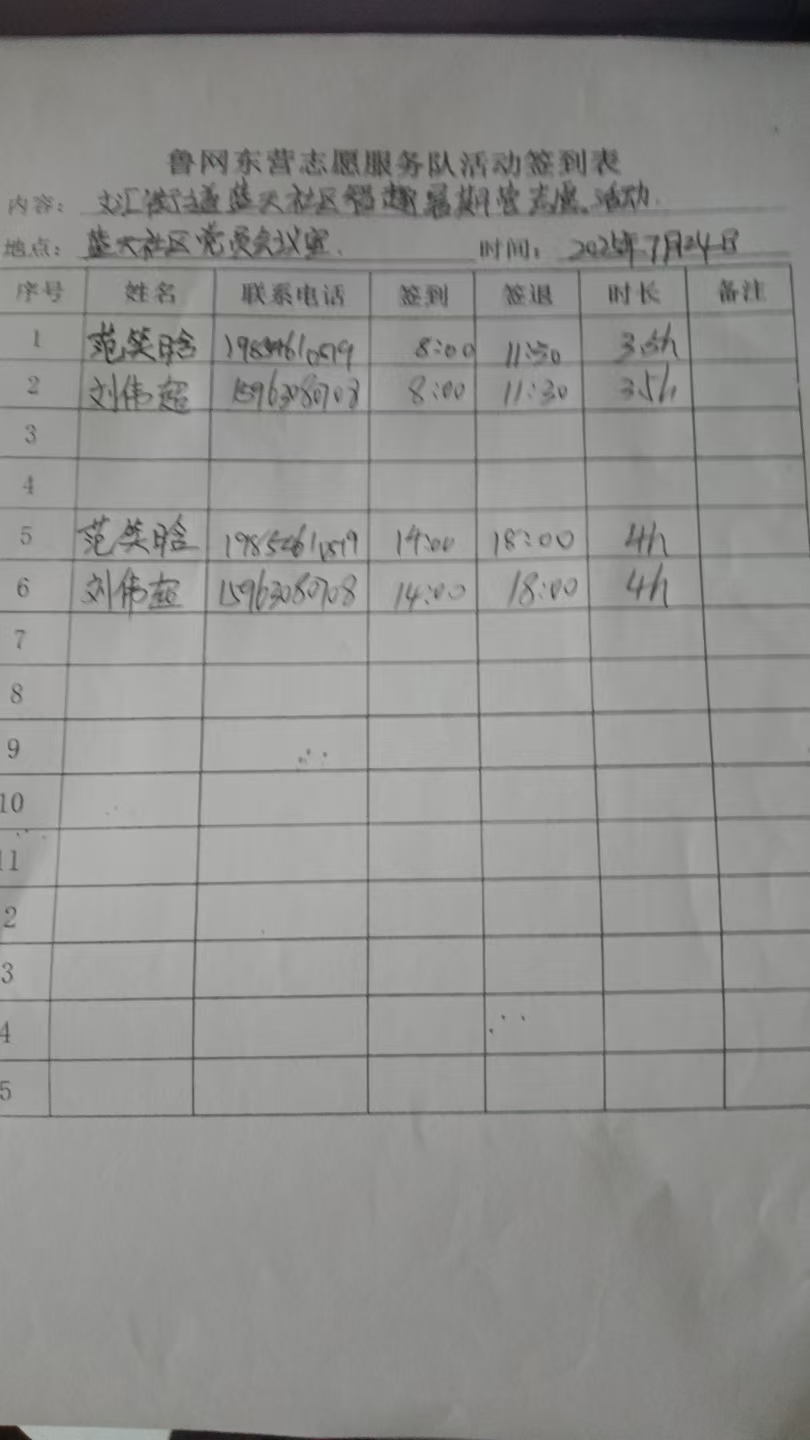 鲁网东营志愿服务队活动签到表
内容： 文汇街道蓝天社区 趣暑期营志愿活动.
地点： 蓝天社区党员会议室. 时间： 2025年7月24日
序号 姓名 联系电话 签到 签退 时长 备注
1 范笑晗 8:00 11:30 3.5h
2 刘伟超 15963080708 8:00 11:30 3.5h
3
4
5 范笑晗 14:00 18:00 4h
6 刘伟超 15963080708 14:00 18:00 4h
7
8
9
10
11
2
3
4
5